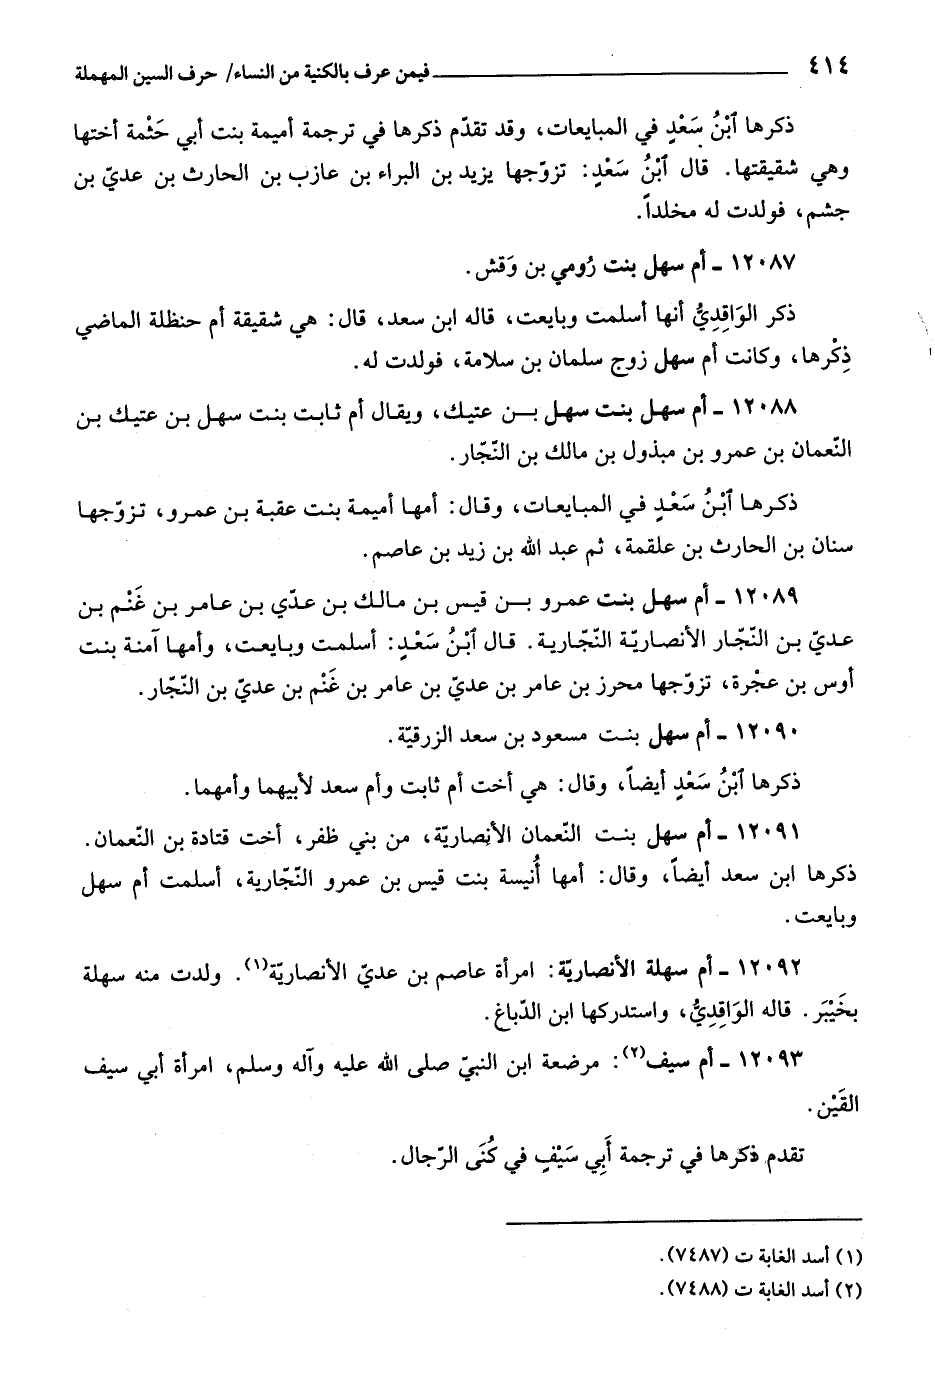 ٤١٤ ــــــــــــ فيمن عرف بالكنية من النساء/ حرف السين المهملة
ذكرها ٱبْنُ سَعْدٍ في المبايعات، وقد تقدّم ذكرها في ترجمة أميمة بنت أبي حَثْمة أختها
وهي شقيقتها. قال ٱبْنُ سَعْدٍ: تزوّجها يزيد بن البراء بن عازب بن الحارث بن عديّ بن
جشم، فولدت له مخلداً.
١٢٠٨٧ ـ أم سهل بنت رُومي بن وَقش.
ذكر الوَاقِدِيُّ أنها أسلمت وبايعت، قاله ابن سعد، قال: هي شقيقة أم حنظلة الماضي
ذِكْرها، وكانت أم سهل زوج سلمان بن سلامة، فولدت له.
١٢٠٨٨ ـ أم سهل بنت سهل بن عتيك، ويقال أم ثابت بنت سهل بن عتيك بن
النّعمان بن عمرو بن مبذول بن مالك بن النّجّار.
ذكرها ٱبْنُ سَعْدٍ في المبايعات، وقال: أمها أميمة بنت عقبة بن عمرو، تزوّجها
سنان بن الحارث بن علقمة، ثم عبد الله بن زيد بن عاصم.
١٢٠٨٩ ـ أم سهل بنت عمرو بن قيس بن مالك بن عدّي بن عامر بن غَنْم بن
عديّ بن النّجّار الأنصاريّة النّجّارية. قال ٱبْنُ سَعْدٍ: أسلمت وبايعت، وأمها آمنة بنت
أوس بن عجْرة، تزوّجها محرز بن عامر بن عديّ بن عامر بن غَنْم بن عديّ بن النّجّار.
١٢٠٩٠ ـ أم سهل بنت مسعود بن سعد الزرقيّة.
ذكرها ٱبْنُ سَعْدٍ أيضاً، وقال: هي أخت أم ثابت وأم سعد لأبيهما وأمهما.
١٢٠٩١ ـ أم سهل بنت النّعمان الأنصاريّة، من بني ظفر، أخت قتادة بن النّعمان.
ذكرها ابن سعد أيضاً، وقال: أمها أُنيسة بنت قيس بن عمرو النّجّارية، أسلمت أم سهل
وبايعت.
١٢٠٩٢ ـ أم سهلة الأنصاريّة: امرأة عاصم بن عديّ الأنصاريّة(١). ولدت منه سهلة
بخَيْبَر. قاله الوَاقِدِيُّ، واستدركها ابن الدّباغ.
١٢٠٩٣ ـ أم سيف(٢): مرضعة ابن النبيّ صلى الله عليه وآله وسلم، امرأة أبي سيف
القَيْن.
تقدم ذكرها في ترجمة أَبِي سَيْفٍ في كُنَى الرّجال.
(١) أسد الغابة ت (٧٤٨٧).
(٢) أسد الغابة ت (٧٤٨٨).